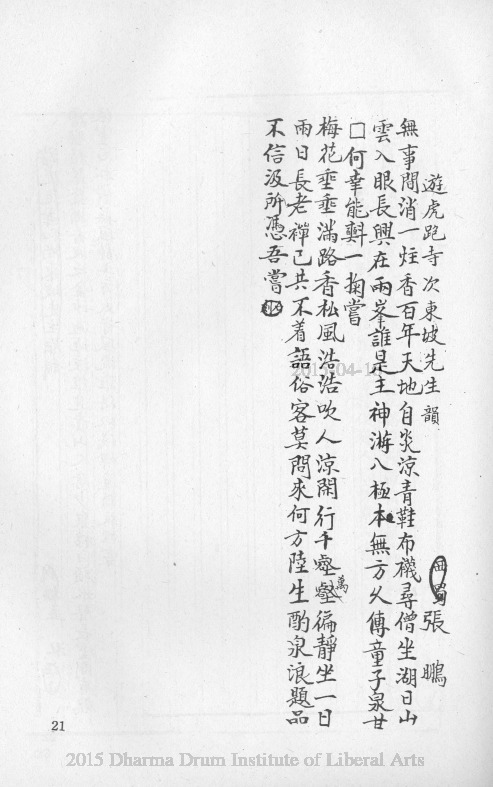 遊虎跑寺次東坡先生韻 西蜀張鵬
無事閒消一炷香百年天地自炎涼青鞋布襪尋僧坐湖日山
雲入眼長興在兩峯誰是主神游八極本無方久傳童子泉甘
□何幸能㪺一掬嘗
梅花垂垂滿路香松風浩浩吹人涼閒行千壑萬壑徧靜坐一日
兩日長老禪已共不着語俗客莫問來何方陸生酌泉浪題品
不信汲所憑吾嘗
21
2015 Dharma Drum Institute of Liberal Arts